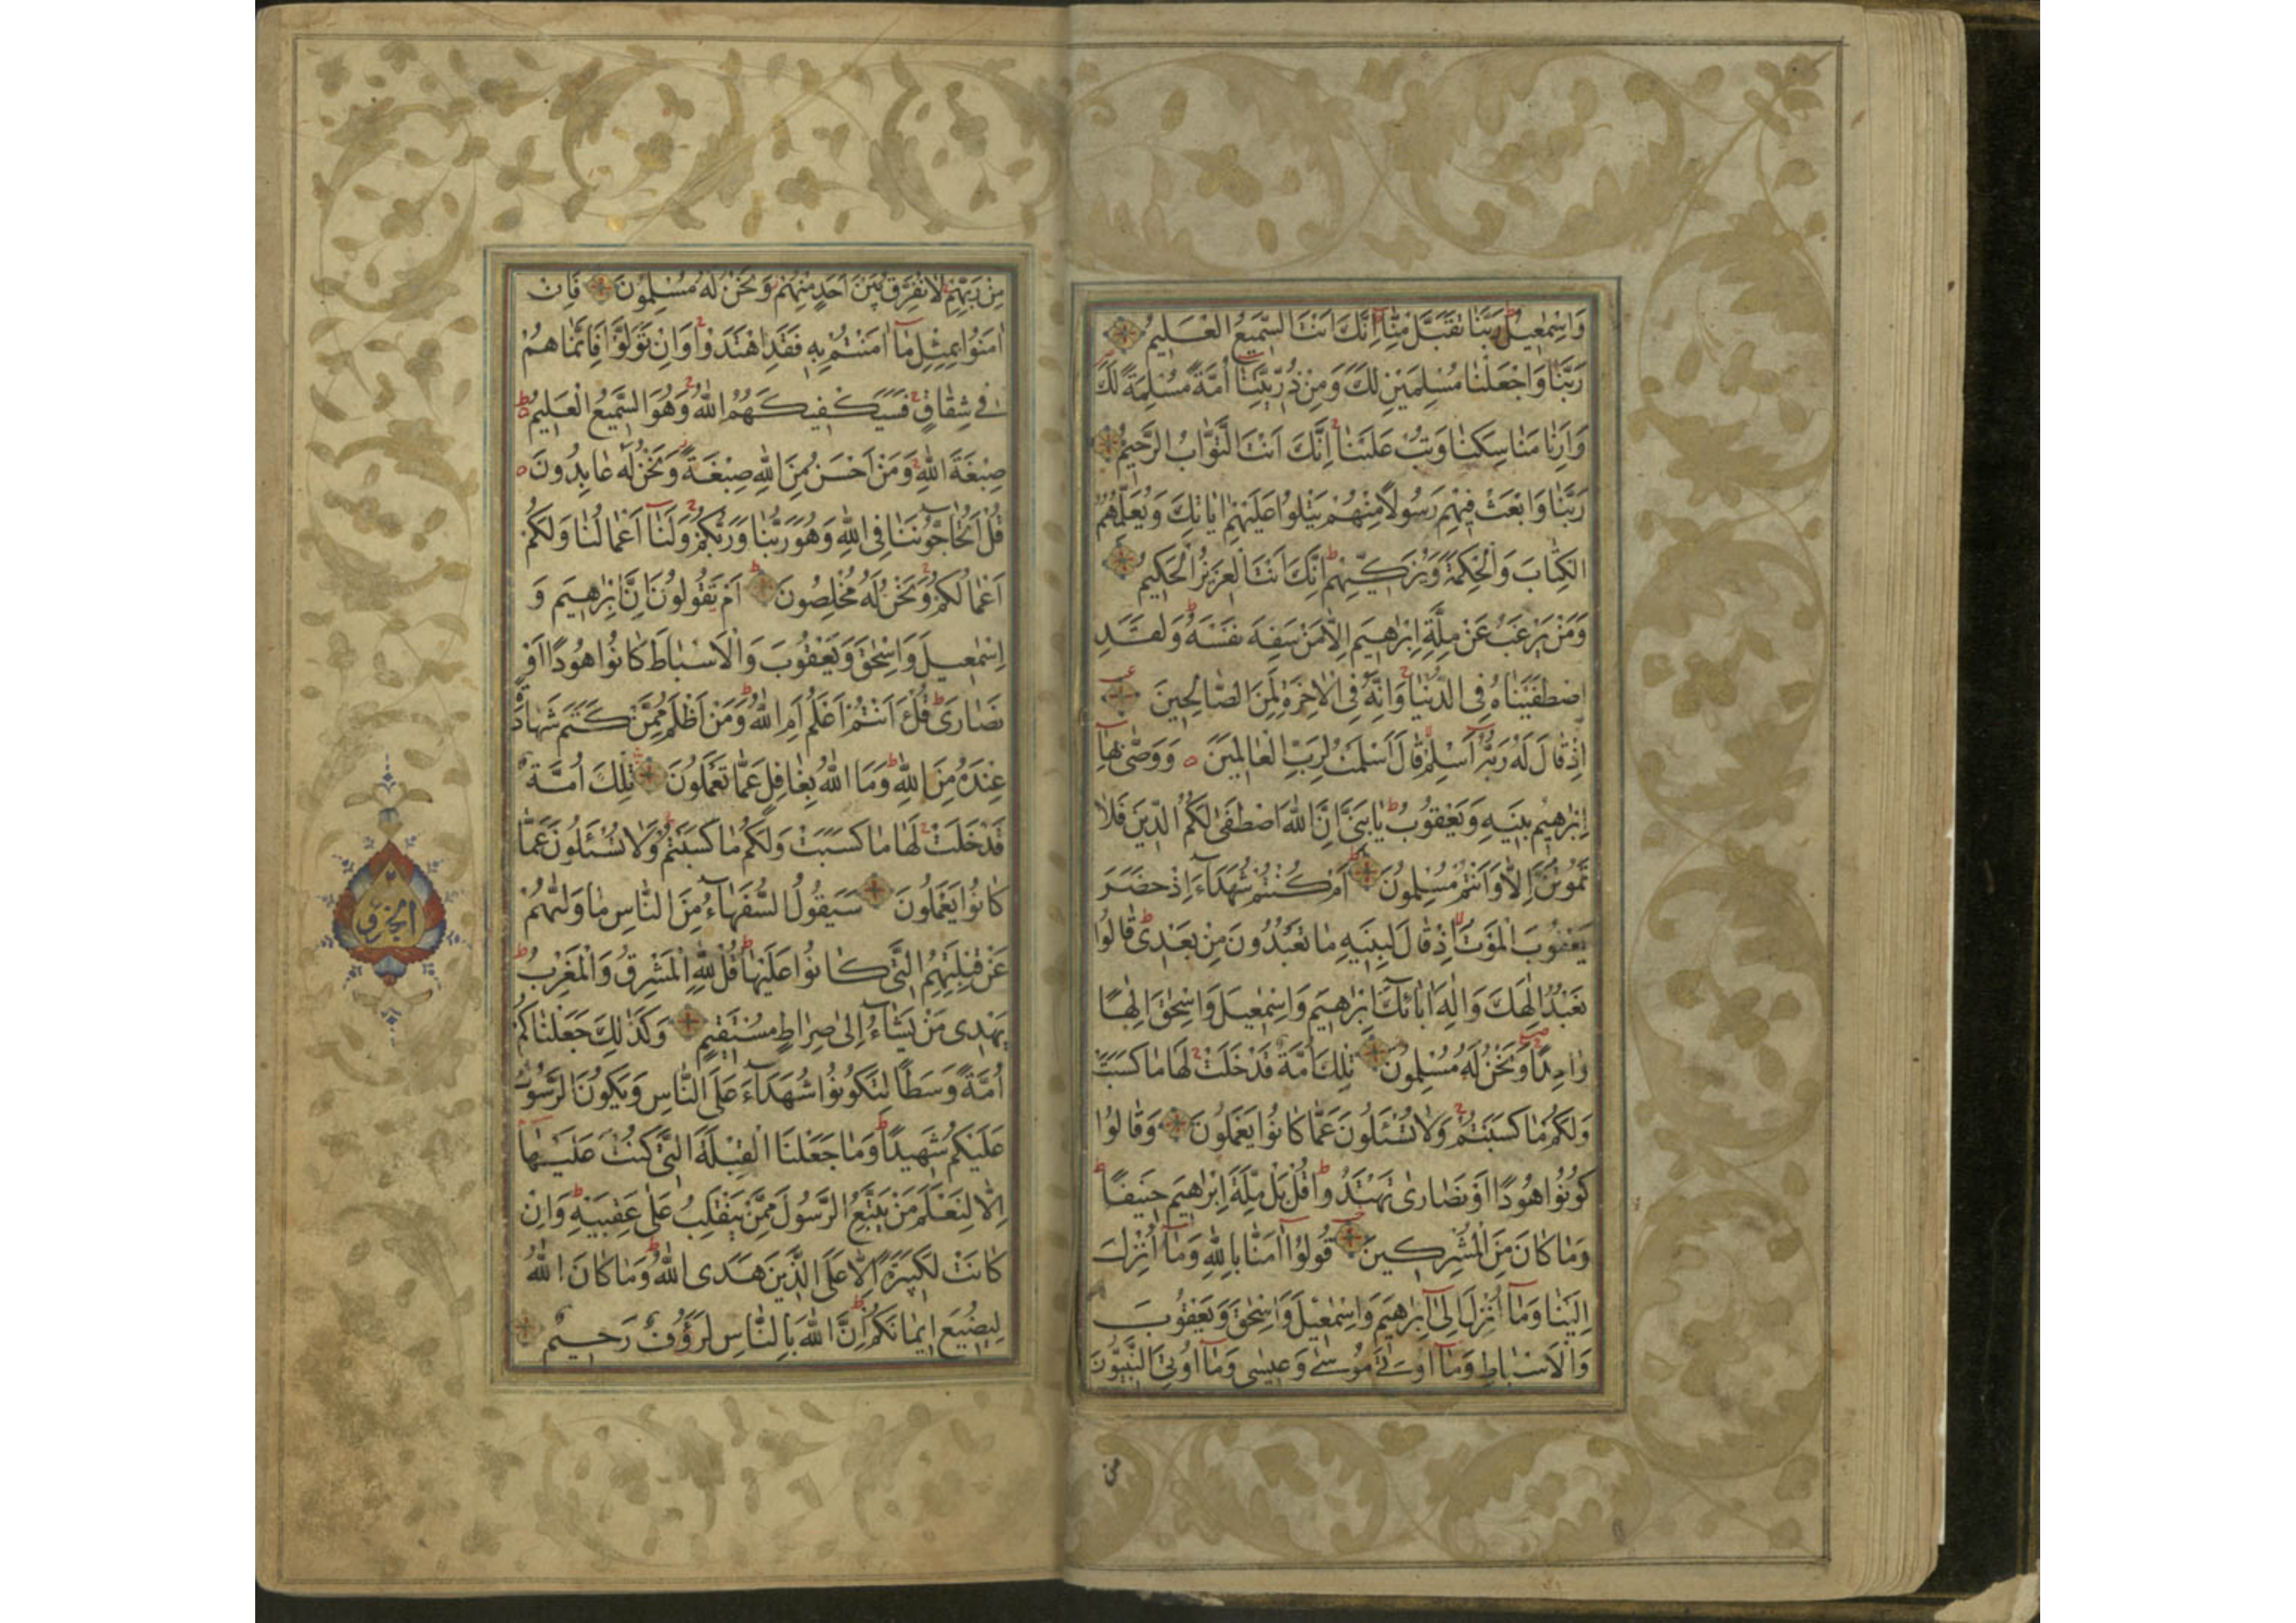 وَاِسْمٰعِيلُ رَبَّنَا تَقَبَّلْ مِنَّا اِنَّكَ اَنْتَ السَّمِيعُ الْعَلِيمُ
رَبَّنَا وَاجْعَلْنَا مُسْلِمَيْنِ لَكَ وَمِنْ ذُرِّيَّتِنَا اُمَّةً مُسْلِمَةً لَكَ
وَاَرِنَا مَنَاسِكَنَا وَتُبْ عَلَيْنَا اِنَّكَ اَنْتَ التَّوَّابُ الرَّحِيمُ
رَبَّنَا وَابْعَثْ فِيهِمْ رَسُولًا مِنْهُمْ يَتْلُوا عَلَيْهِمْ اٰيَاتِكَ وَيُعَلِّمُهُمُ
الْكِتَابَ وَالْحِكْمَةَ وَيُزَكِّيهِمْ اِنَّكَ اَنْتَ الْعَزِيزُ الْحَكِيمُ
وَمَنْ يَرْغَبُ عَنْ مِلَّةِ اِبْرٰهِيمَ اِلَّا مَنْ سَفِهَ نَفْسَهُ وَلَقَدِ
اصْطَفَيْنَاهُ فِي الدُّنْيَا وَاِنَّهُ فِي الْاٰخِرَةِ لَمِنَ الصَّالِحِينَ
اِذْ قَالَ لَهُ رَبُّهُ اَسْلِمْ قَالَ اَسْلَمْتُ لِرَبِّ الْعَالَمِينَ وَوَصّٰى بِهَا
اِبْرٰهِيمُ بَنِيهِ وَيَعْقُوبُ يَا بَنِيَّ اِنَّ اللّٰهَ اصْطَفٰى لَكُمُ الدِّينَ فَلَا
تَمُوتُنَّ اِلَّا وَاَنْتُمْ مُسْلِمُونَ اَمْ كُنْتُمْ شُهَدَاءَ اِذْ حَضَرَ
يَعْقُوبَ الْمَوْتُ اِذْ قَالَ لِبَنِيهِ مَا تَعْبُدُونَ مِنْ بَعْدِي قَالُوا
نَعْبُدُ اِلٰهَكَ وَاِلٰهَ اٰبَائِكَ اِبْرٰهِيمَ وَاِسْمٰعِيلَ وَاِسْحٰقَ اِلٰهًا
وَاحِدًا وَنَحْنُ لَهُ مُسْلِمُونَ تِلْكَ اُمَّةٌ قَدْ خَلَتْ لَهَا مَا كَسَبَتْ
وَلَكُمْ مَا كَسَبْتُمْ وَلَا تُسْئَلُونَ عَمَّا كَانُوا يَعْمَلُونَ وَقَالُوا
كُونُوا هُودًا اَوْ نَصَارٰى تَهْتَدُوا قُلْ بَلْ مِلَّةَ اِبْرٰهِيمَ حَنِيفًا
وَمَا كَانَ مِنَ الْمُشْرِكِينَ قُولُوا اٰمَنَّا بِاللّٰهِ وَمَا اُنْزِلَ
اِلَيْنَا وَمَا اُنْزِلَ اِلٰى اِبْرٰهِيمَ وَاِسْمٰعِيلَ وَاِسْحٰقَ وَيَعْقُوبَ
وَالْاَسْبَاطِ وَمَا اُوتِيَ مُوسٰى وَعِيسٰى وَمَا اُوتِيَ النَّبِيُّونَ
من
مِنْ رَبِّهِمْ لَا نُفَرِّقُ بَيْنَ اَحَدٍ مِنْهُمْ وَنَحْنُ لَهُ مُسْلِمُونَ فَاِنْ
اٰمَنُوا بِمِثْلِ مَا اٰمَنْتُمْ بِهِ فَقَدِ اهْتَدَوْا وَاِنْ تَوَلَّوْا فَاِنَّمَا هُمْ
فِي شِقَاقٍ فَسَيَكْفِيكَهُمُ اللّٰهُ وَهُوَ السَّمِيعُ الْعَلِيمُ
صِبْغَةَ اللّٰهِ وَمَنْ اَحْسَنُ مِنَ اللّٰهِ صِبْغَةً وَنَحْنُ لَهُ عَابِدُونَ
قُلْ اَتُحَاجُّونَنَا فِي اللّٰهِ وَهُوَ رَبُّنَا وَرَبُّكُمْ وَلَنَا اَعْمَالُنَا وَلَكُمْ
اَعْمَالُكُمْ وَنَحْنُ لَهُ مُخْلِصُونَ اَمْ تَقُولُونَ اِنَّ اِبْرٰهِيمَ وَ
اِسْمٰعِيلَ وَاِسْحٰقَ وَيَعْقُوبَ وَالْاَسْبَاطَ كَانُوا هُودًا اَوْ
نَصَارٰى قُلْ ءَاَنْتُمْ اَعْلَمُ اَمِ اللّٰهُ وَمَنْ اَظْلَمُ مِمَّنْ كَتَمَ شَهَادَةً
عِنْدَهُ مِنَ اللّٰهِ وَمَا اللّٰهُ بِغَافِلٍ عَمَّا تَعْمَلُونَ تِلْكَ اُمَّةٌ
قَدْ خَلَتْ لَهَا مَا كَسَبَتْ وَلَكُمْ مَا كَسَبْتُمْ وَلَا تُسْئَلُونَ عَمَّا
كَانُوا يَعْمَلُونَ سَيَقُولُ السُّفَهَاءُ مِنَ النَّاسِ مَا وَلّٰيهُمْ
عَنْ قِبْلَتِهِمُ الَّتِي كَانُوا عَلَيْهَا قُلْ لِلّٰهِ الْمَشْرِقُ وَالْمَغْرِبُ
يَهْدِي مَنْ يَشَاءُ اِلٰى صِرَاطٍ مُسْتَقِيمٍ وَكَذٰلِكَ جَعَلْنَاكُمْ
اُمَّةً وَسَطًا لِتَكُونُوا شُهَدَاءَ عَلَى النَّاسِ وَيَكُونَ الرَّسُولُ
عَلَيْكُمْ شَهِيدًا وَمَا جَعَلْنَا الْقِبْلَةَ الَّتِي كُنْتَ عَلَيْهَا
اِلَّا لِنَعْلَمَ مَنْ يَتَّبِعُ الرَّسُولَ مِمَّنْ يَنْقَلِبُ عَلٰى عَقِبَيْهِ وَاِنْ
كَانَتْ لَكَبِيرَةً اِلَّا عَلَى الَّذِينَ هَدَى اللّٰهُ وَمَا كَانَ اللّٰهُ
لِيُضِيعَ اِيمَانَكُمْ اِنَّ اللّٰهَ بِالنَّاسِ لَرَؤُفٌ رَحِيمٌ